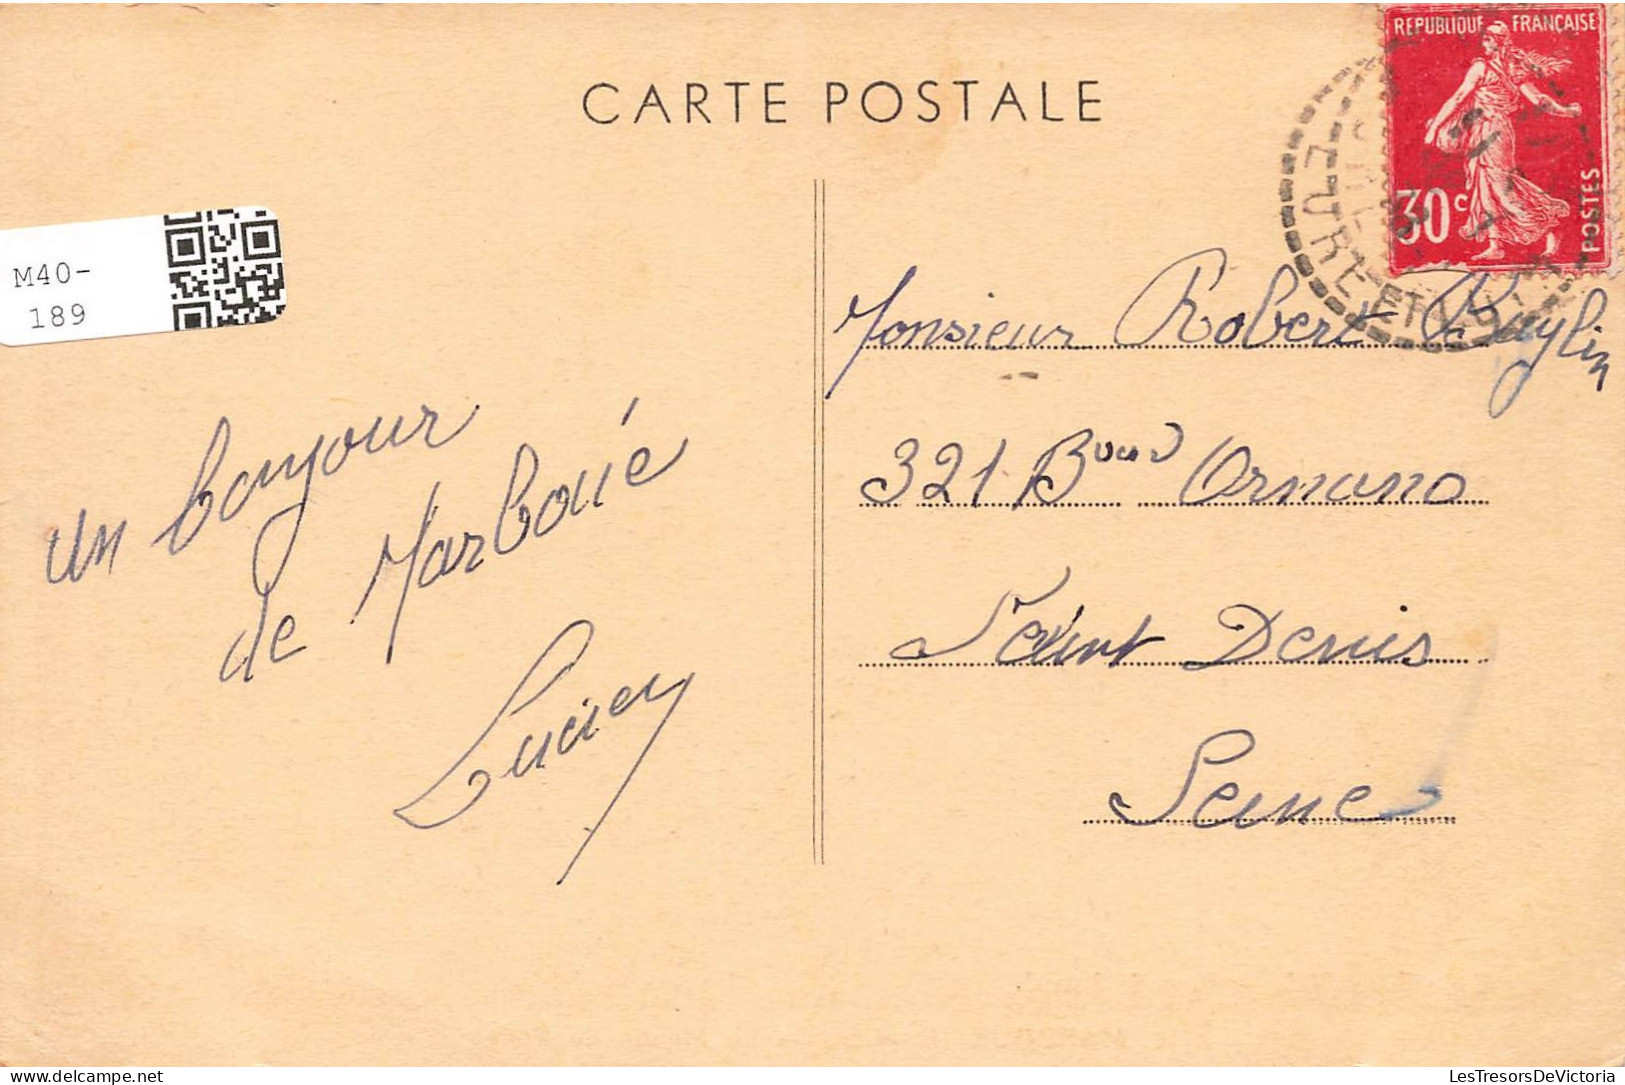 CARTE POSTALE
REPUBLIQUE FRANÇAISE
30c
POSTES
EURE-ET-L
M40-
189
un bonjour
de Marboué
Lucien
Monsieur Robert Baylin
321 Bould Ornano
Saint Denis
Seine
LesTresorsDeVictoria